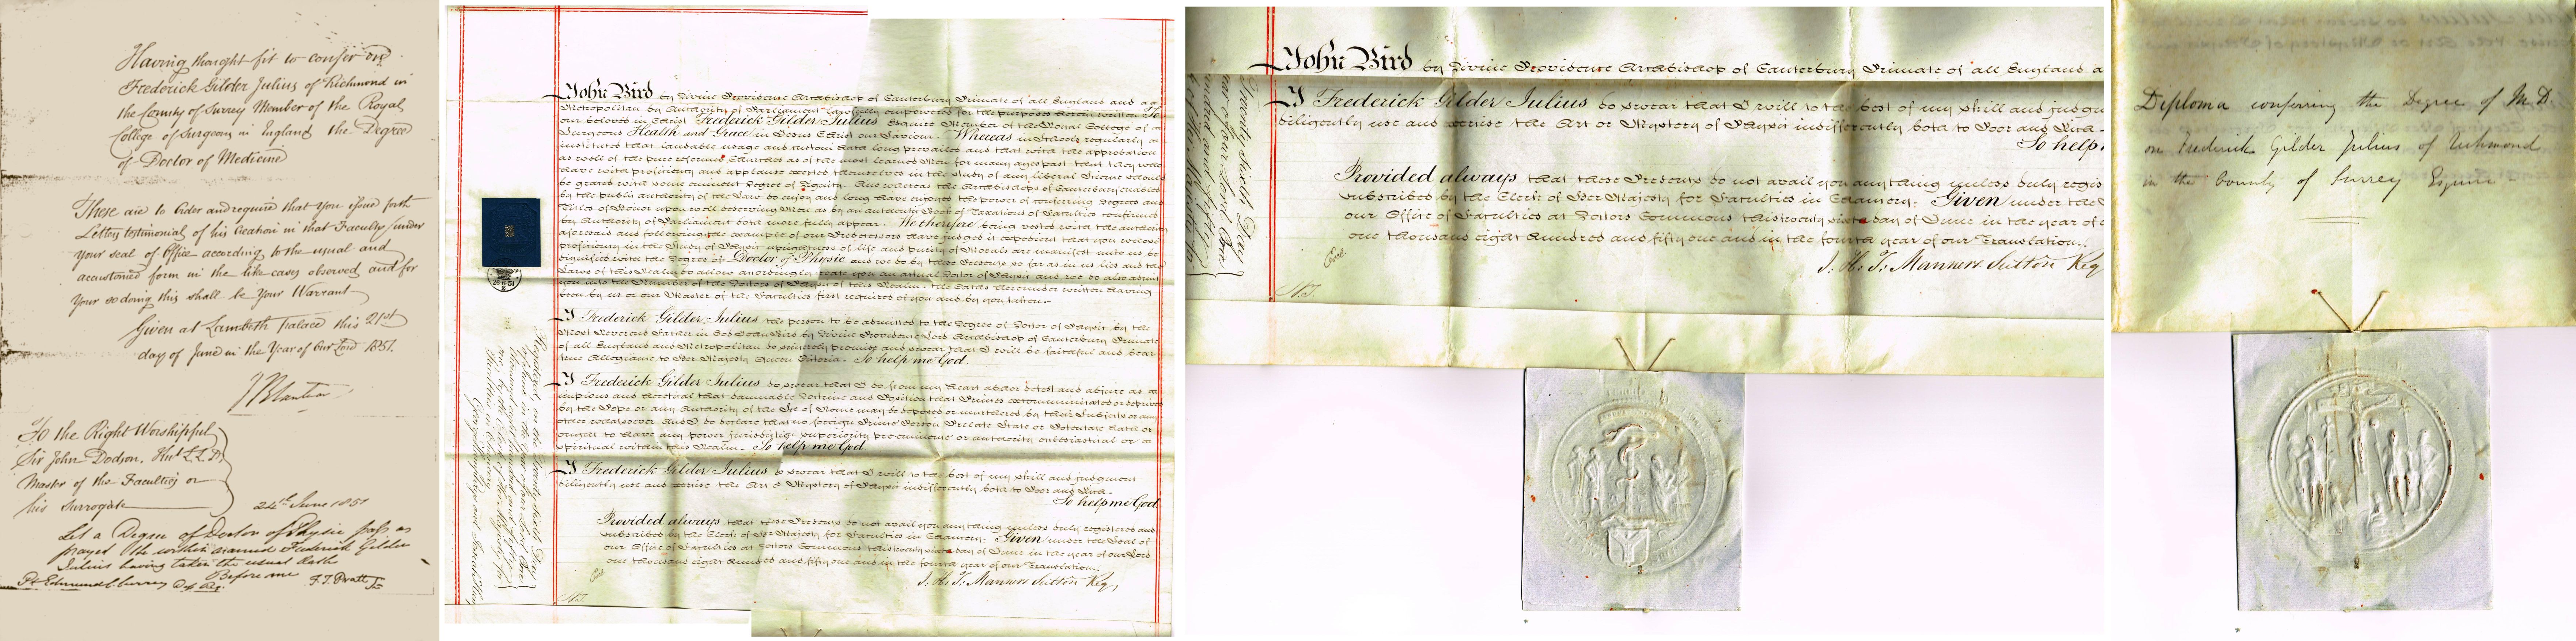 Having thought fit to confer on
Frederick Gilder Julius of Richmond in
the County of Surrey Member of the Royal
College of Surgeons in England the Degree
of Doctor of Medicine
These are to Order and require that you issue forth
Letters testimonial of his Creation in that Faculty under
your seal of Office according to the usual and
accustomed form in the like cases observed and for
Your so doing this shall be Your Warrant
Given at Lambeth Palace this 21st
day of June in the Year of Our Lord 1851.
J B Cantuar
To the Right Worshipful
Sir John Dodson, Knt L.L.D.
Master of the Faculties or
his Surrogate
24th June 1851
Let a Degree of Doctor of Physic pass as
prayed the within named Frederick Gilder
Julius having taken the usual Oath
Before me
John Bird by Divine Providence Archbishop of Canterbury Primate of all England and
Metropolitan by Authority of Parliament lawfully empowered for the purposes herein written To
our beloved in Christ Frederick Gilder Julius Esquire Member of the Royal College of
Surgeons Health and Grace in Jesus Christ our Saviour. Whereas in Schools regularly
instituted that laudable usage and custom hath long prevailed and that with the approbation
as well of the pure reformed Churches as of the most learned Men for many ages past that they who
have with proficiency and applause exerted themselves in the study of any liberal Science should
be graced with some eminent degree of Dignity. And whereas the Archbishops of Canterbury enabled
by the public authority of the Law do enjoy and long have enjoyed the power of conferring Degrees and
Titles of Honor upon well deserving Men as by an authentic Book of Taxations of Faculties confirmed
by Authority of Parliament doth more fully appear. We therefore being vested with the authority
aforesaid and following the example of our Predecessors have judged it expedient that you whose
proficiency in the study of Physic uprightness of life and purity of Morals are manifest unto us be
dignified with the degree of Doctor of Physic and we do by these Presents so far as in us lies and the
Laws of this Realm do allow accordingly create you an actual Doctor of Physic and we do also admit
you into the Number of the Doctors of Physic of this Realm the Oaths hereunder written having
been by us or our Master of the Faculties first required of you and by you taken
I Frederick Gilder Julius the person to be admitted to the Degree of Doctor of Physic by the
Most Reverend Father in God John Bird by Divine Providence Lord Archbishop of Canterbury Primate
of all England and Metropolitan do sincerely promise and swear that I will be faithful and bear
true Allegiance to Her Majesty Queen Victoria. So help me God.
I Frederick Gilder Julius do swear that I do from my heart abhor detest and abjure as
impious and heretical that damnable Doctrine and Position that Princes excommunicated or deprived
by the Pope or any Authority of the See of Rome may be deposed or murthered by their Subjects or any
other whatsoever And I do declare that no foreign Prince Person Prelate State or Potentate hath or
ought to have any power jurisdiction superiority pre-eminence or authority ecclesiastical or
spiritual within this Realm. So help me God.
I Frederick Gilder Julius do swear that I will to the best of my skill and judgment
diligently use and exercise the Art or Mystery of Physic indifferently both to Poor and Rich.
So help me God
Provided always that these Presents do not avail you any thing unless duly registered and
subscribed by the Clerk of Her Majesty for Faculties in Chancery. Given under the Seal of
our Office of Faculties at Doctors Commons this twenty sixth day of June in the year of our Lord
one thousand eight hundred and fifty one and in the fourth year of our Translation.
J. H. T. Manners Sutton Reg
John Bird by Divine Providence Archbishop of Canterbury Primate of all England a
I Frederick Gilder Julius do swear that I will to the best of my skill and judgm
diligently use and exercise the Art or Mystery of Physic indifferently both to Poor and Rich.
So help
Provided always that these Presents do not avail you any thing unless duly regis
subscribed by the Clerk of Her Majesty for Faculties in Chancery. Given under the
our Office of Faculties at Doctors Commons this twenty sixth day of June in the year of
one thousand eight hundred and fifty one and in the fourth year of our Translation.
J. H. T. Manners Sutton Reg
Diploma conferring the Degree of M.D.
on Frederick Gilder Julius of Richmond
in the County of Surrey Esquire